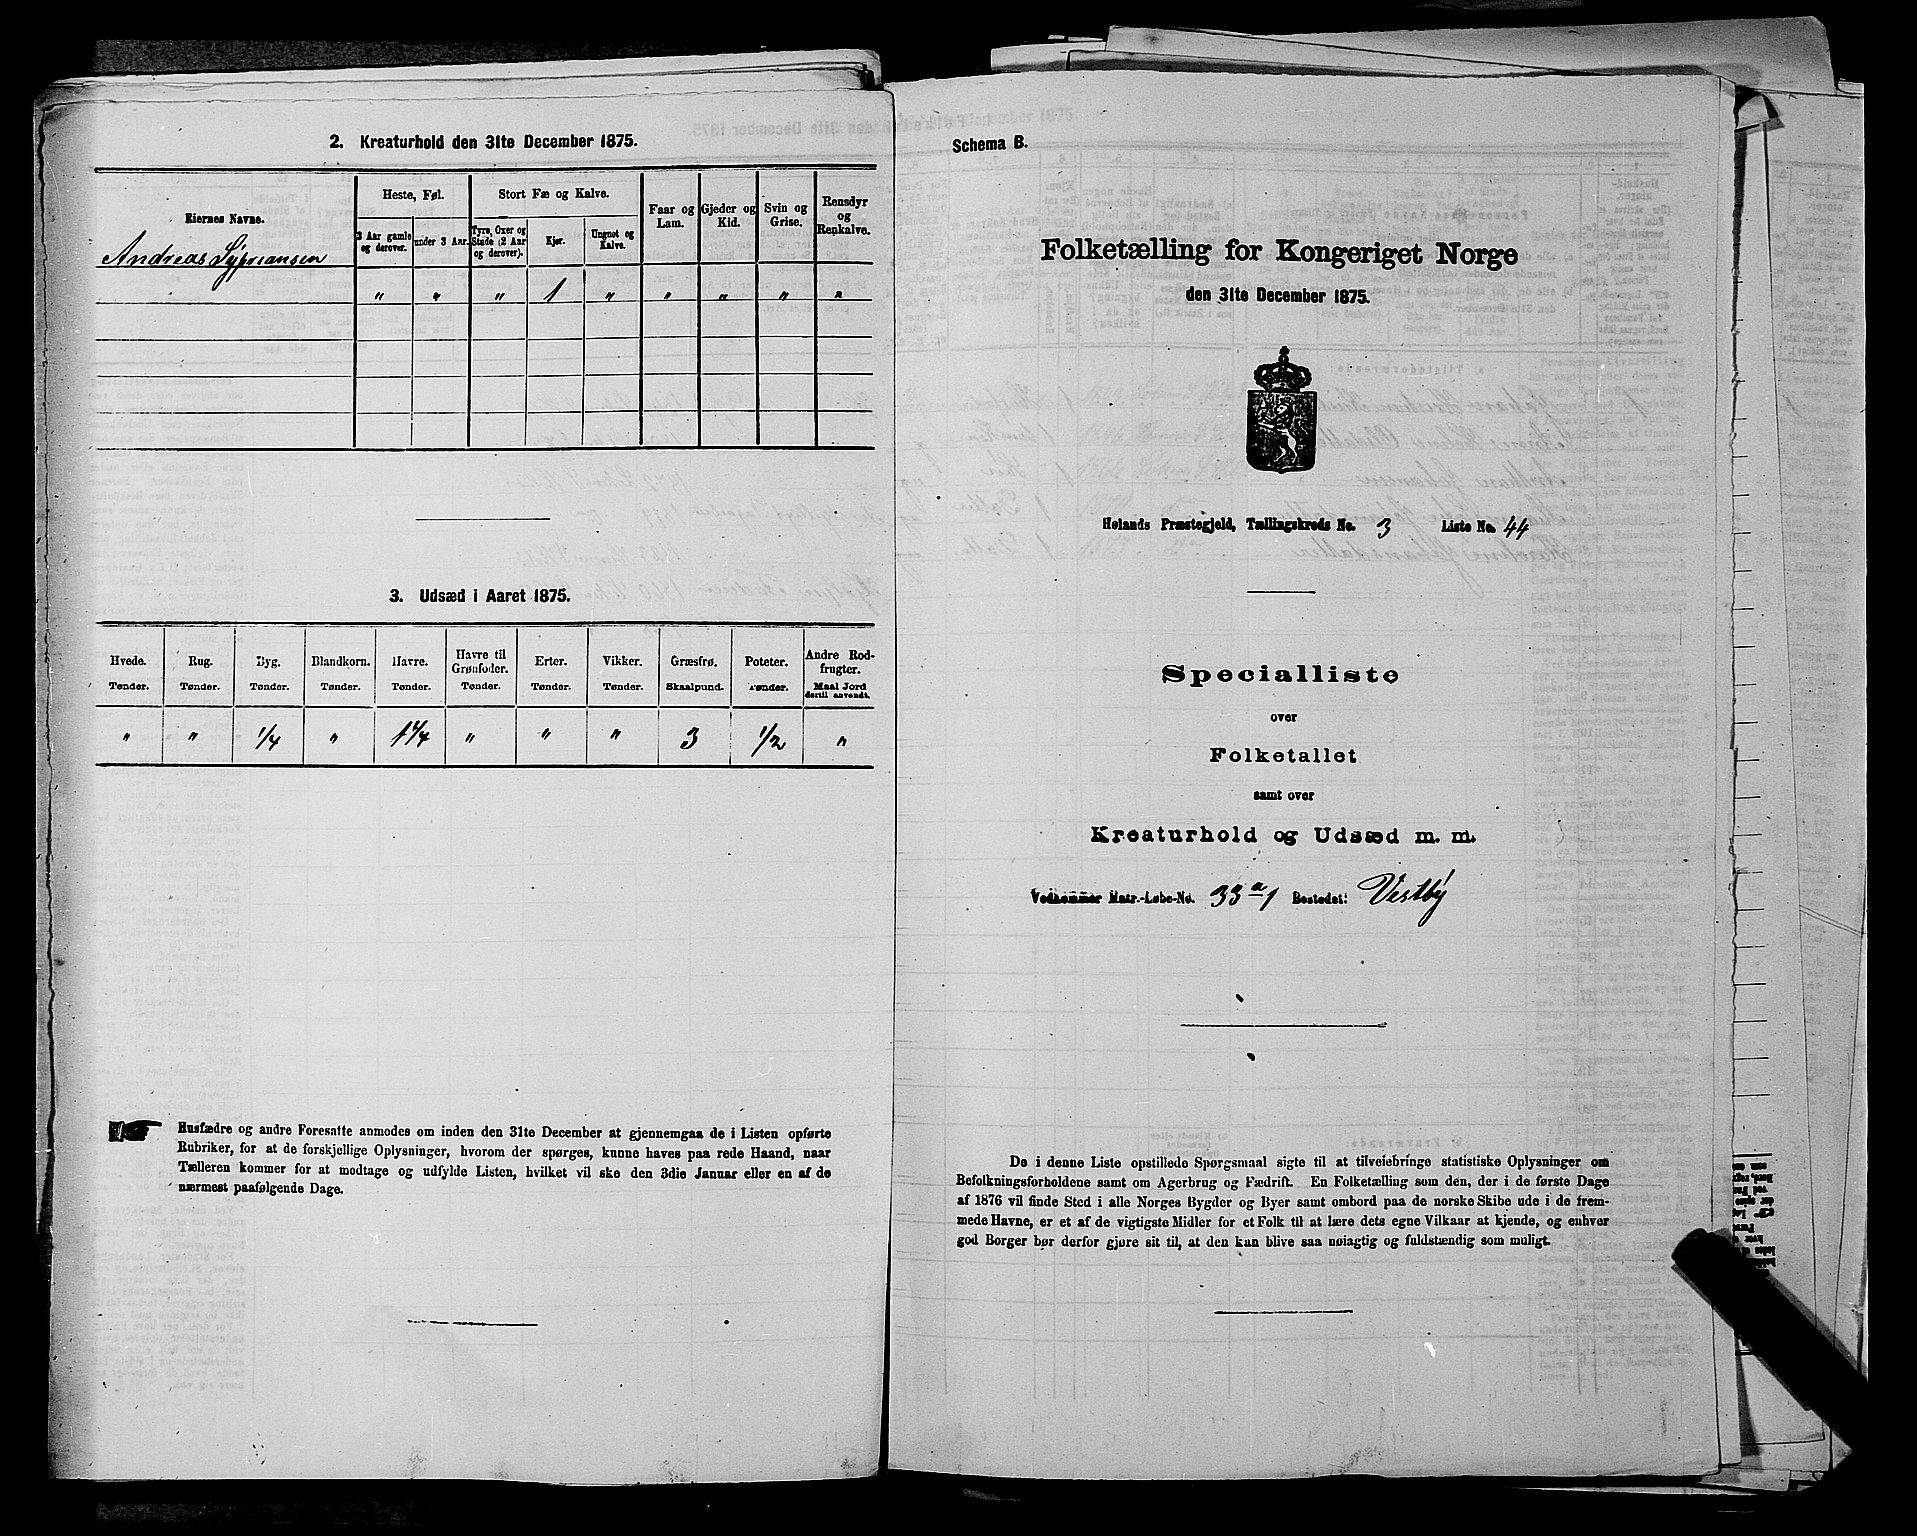 2. Kreaturhold den 31te December 1875.
Eiernes Navne.
Heste, Føl.
Stort Fæ og Kalve.
Faar og Lam.
Gjeder og Kid.
Svin og Grise.
Rensdyr og Renkalve.
3 Aar gamle og derover.
under 3 Aar.
Tyre, Oxer og Stude (2 Aar og derover).
Kjør.
Ungnøt og Kalve.
Andreas Sypriansen
" " " 1 " " " " "
3. Udsæd i Aaret 1875.
Hvede. Rug. Byg. Blandkorn. Havre. Havre til Grønfoder. Erter. Vikker. Græsfrø. Poteter. Andre Rodfrugter.
Tønder. Tønder. Tønder. Tønder. Tønder. Tønder. Tønder. Tønder. Skaalpund. Tønder. Maal Jord dertil anvendt.
" " 1/4 " 1 1/4 " " " 3 1/2 "
Husfædre og andre Foresatte anmodes om inden den 31te December at gjennemgaa de i Listen opførte
Rubriker, for at de forskjellige Oplysninger, hvorom der spørges, kunne haves paa rede Haand, naar
Tælleren kommer for at modtage og udfylde Listen, hvilket vil ske den 3die Januar eller en af de
nærmest paafølgende Dage.
Schema B.
Folketælling for Kongeriget Norge
den 31te December 1875.
Hølands Præstegjeld, Tællingskreds No. 3 Liste No. 44
Specialliste
over
Folketallet
samt over
Kreaturhold og Udsæd m. m.
Vedkommer Matr.-Løbe-No. 33 a 1 Bostedet: Vestby
De i denne Liste opstillede Spørgsmaal sigte til at tilveiebringe statistiske Oplysninger om
Befolkningsforholdene samt om Agerbrug og Fædrift. En Folketælling som den, der i de første Dage
af 1876 vil finde Sted i alle Norges Bygder og Byer samt ombord paa de norske Skibe ude i de frem-
mede Havne, er et af de vigtigste Midler for et Folk til at lære dets egne Vilkaar at kjende, og enhver
god Borger bør derfor gjøre sit til, at den kan blive saa nøiagtig og fuldstændig som muligt.